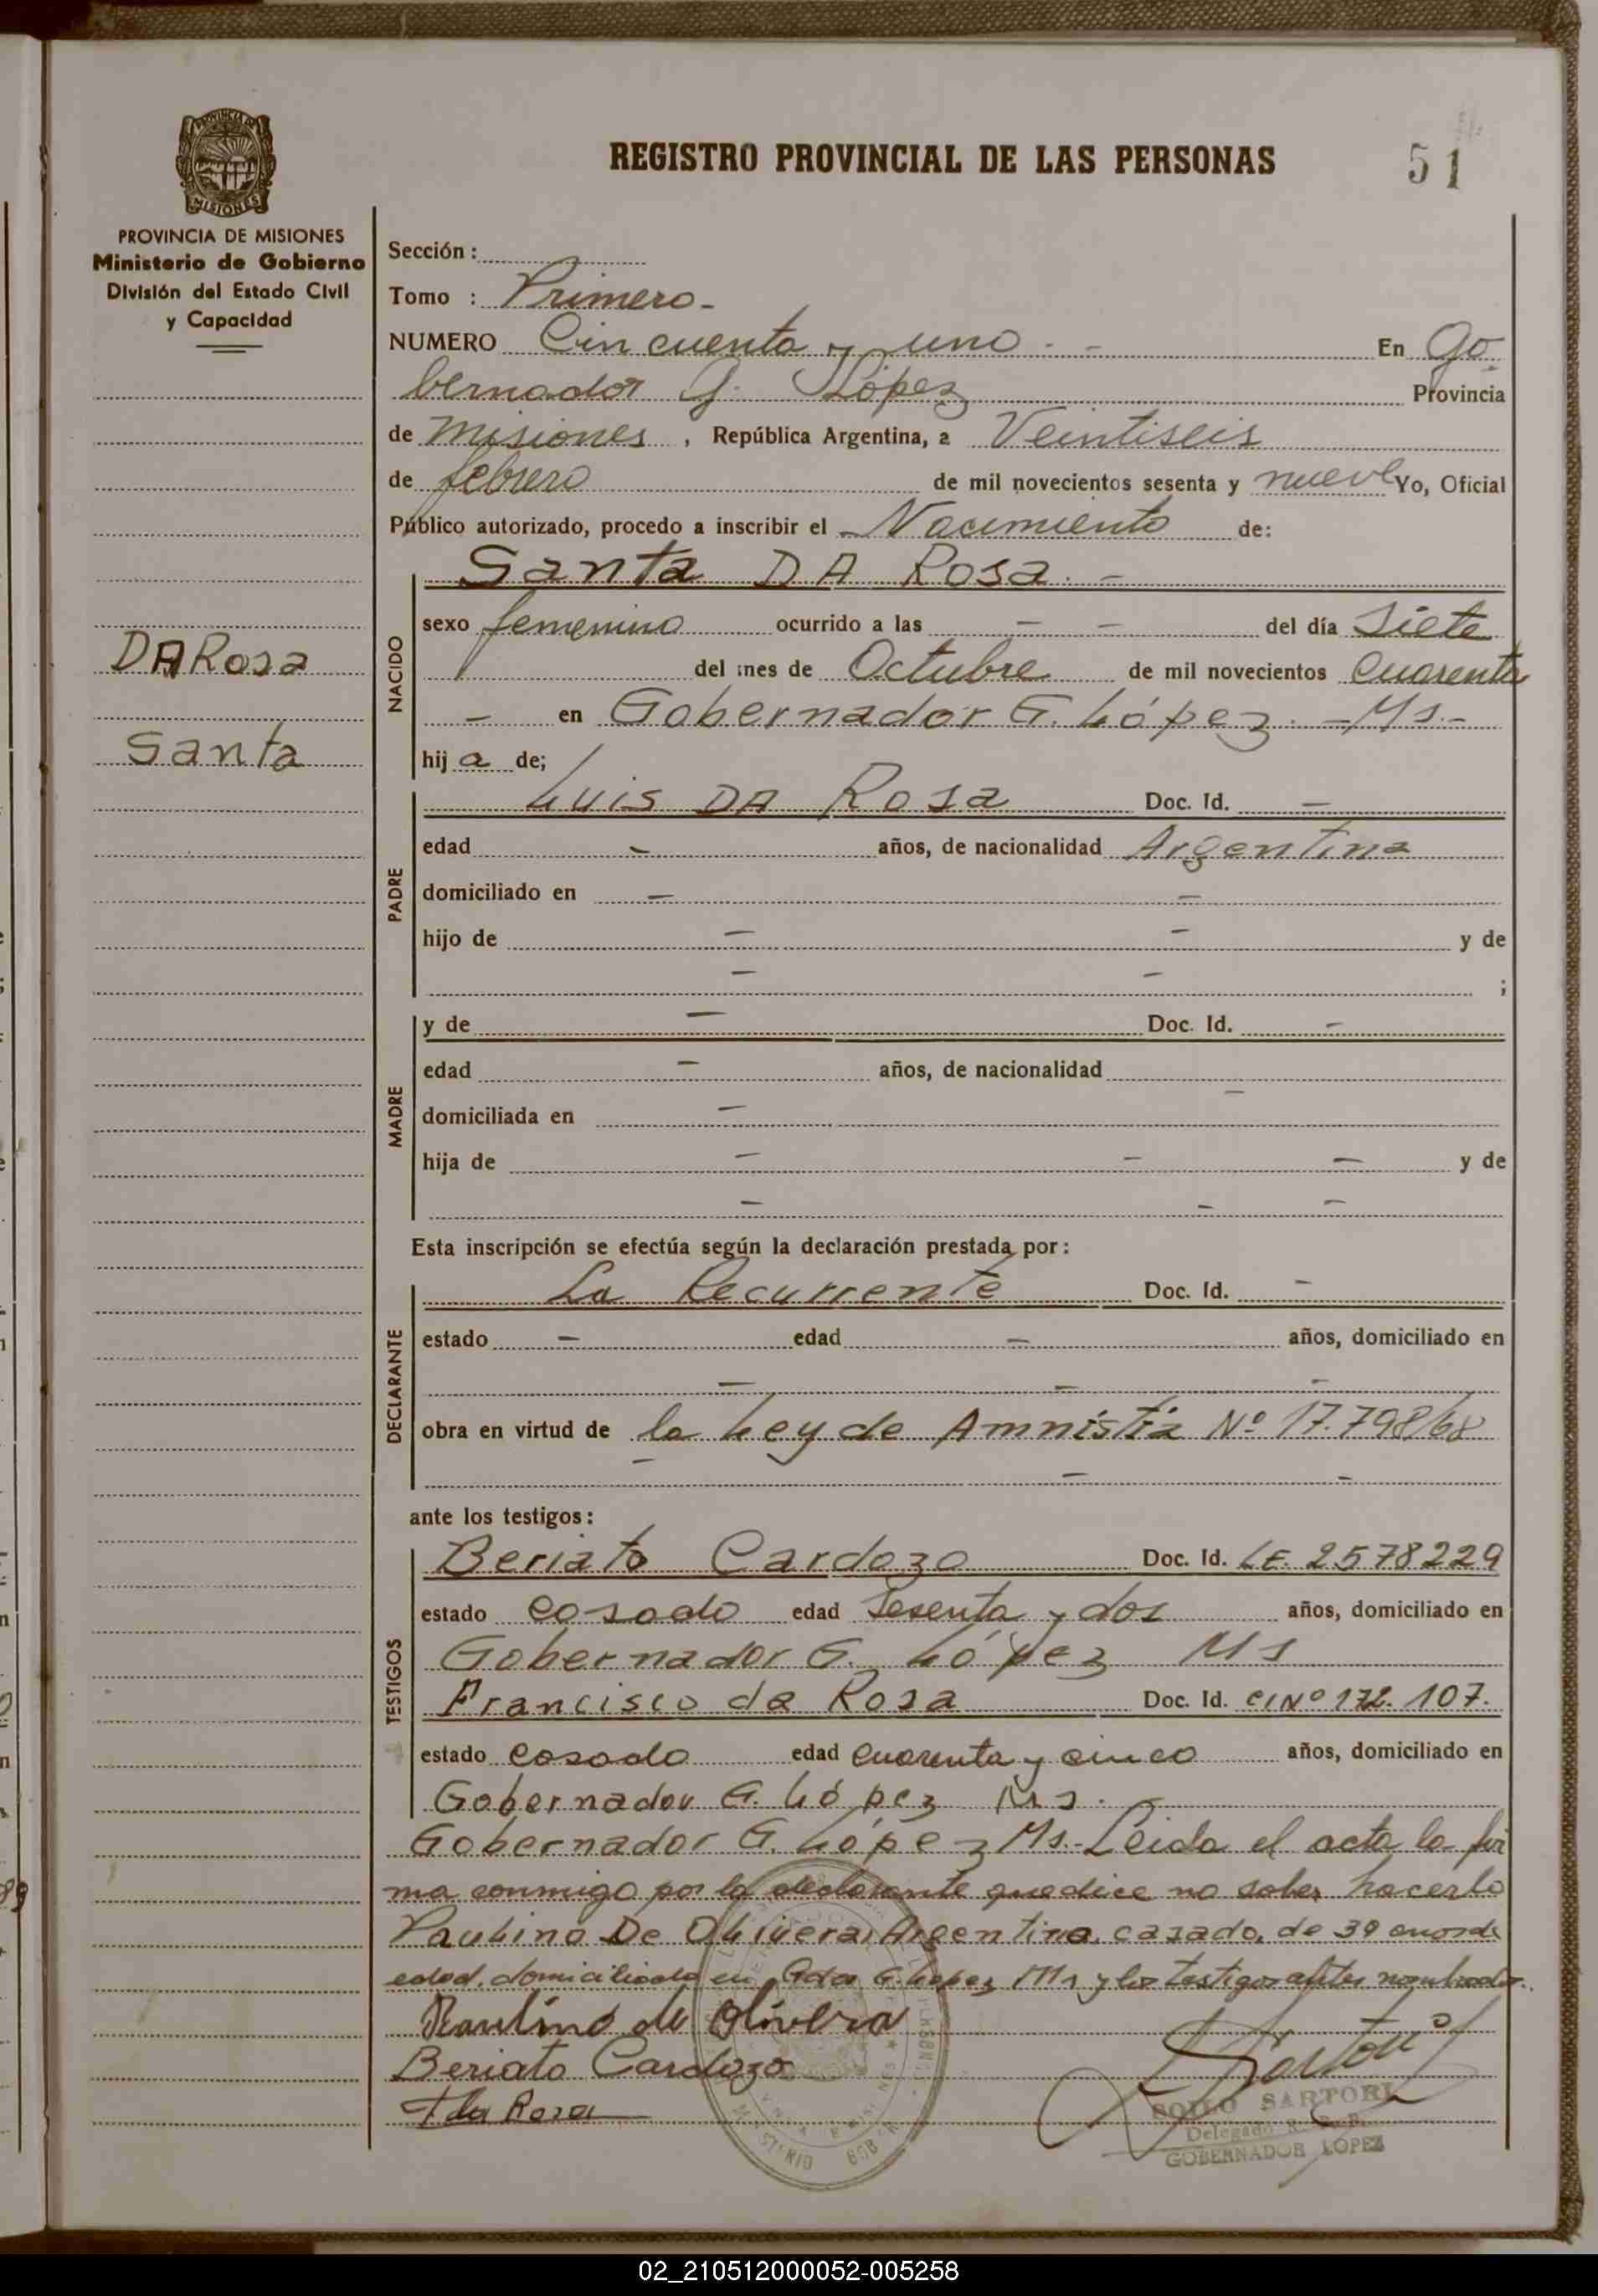 REGISTRO PROVINCIAL DE LAS PERSONAS
51
PROVINCIA DE MISIONES
Ministerio de Gobierno
División del Estado Civil
y Capacidad
Sección :
Tomo : Primero -
NUMERO Cincuenta y uno - - En Go
bernador G. López Provincia
de Misiones , República Argentina, a Veintiseis
de febrero de mil novecientos sesenta y nueve Yo, Oficial
Público autorizado, procedo a inscribir el Nacimiento de:
Santa DA Rosa. -
NACIDO
sexo femenino ocurrido a las - - del día Siete
del mes de Octubre de mil novecientos Cuarenta
- en Gobernador G. López. - Ms.-
hij a de;
DA Rosa
Santa
PADRE
Luis DA Rosa Doc. Id. -
edad - años, de nacionalidad Argentina
domiciliado en - -
hijo de - - y de
- - ;
MADRE
y de - Doc. Id. -
edad - años, de nacionalidad -
domiciliada en -
hija de - - - y de
- - -
Esta inscripción se efectúa según la declaración prestada por :
DECLARANTE
La Recurrente Doc. Id. -
estado - edad - años, domiciliado en
- - -
obra en virtud de la Ley de Amnistia Nº 17.798/68
- - -
ante los testigos :
TESTIGOS
Beriato Cardozo Doc. Id. LE. 2578229
estado casado edad Sesenta y dos años, domiciliado en
Gobernador G. López Ms
Francisco da Rosa Doc. Id. CI Nº 172.107.
estado casado edad cuarenta y cinco años, domiciliado en
Gobernador G. López Ms.
Gobernador G. López Ms.- Leida el acta la fir
ma conmigo por la declarante que dice no saber hacerlo
Paulino De Olivera, Argentino, casado, de 39 años de
edad, domiciliado en Gdor G. Lopez Ms y los testigos antes nombrados.
Paulino de Olivera
Beriato Cardozo
F da Rosa
Sartori
SARTORI
Delegado R. P. P.
GOBERNADOR LOPEZ
MINISTERIO
GOB
02_210512000052-005258